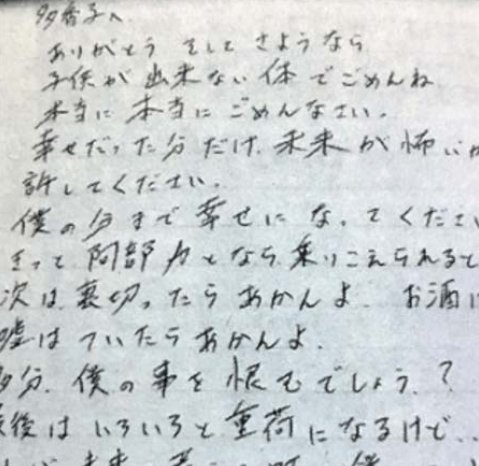 多香子へ
ありがとう そして さようなら
子供が 出来ない 体 で ごめんね
本当に 本当に ごめんなさい.
幸せだった分だけ. 未来 が 怖いか
許してください.
僕の分まで 幸せに なってください
きっと 阿部力となら 乗りこえられると
次は 裏切ったら あかんよ. お酒に
嘘は ついたら あかんよ.
多分. 僕の事を 恨むでしょう. ?
最後は いろいろと 重荷 になるけど...